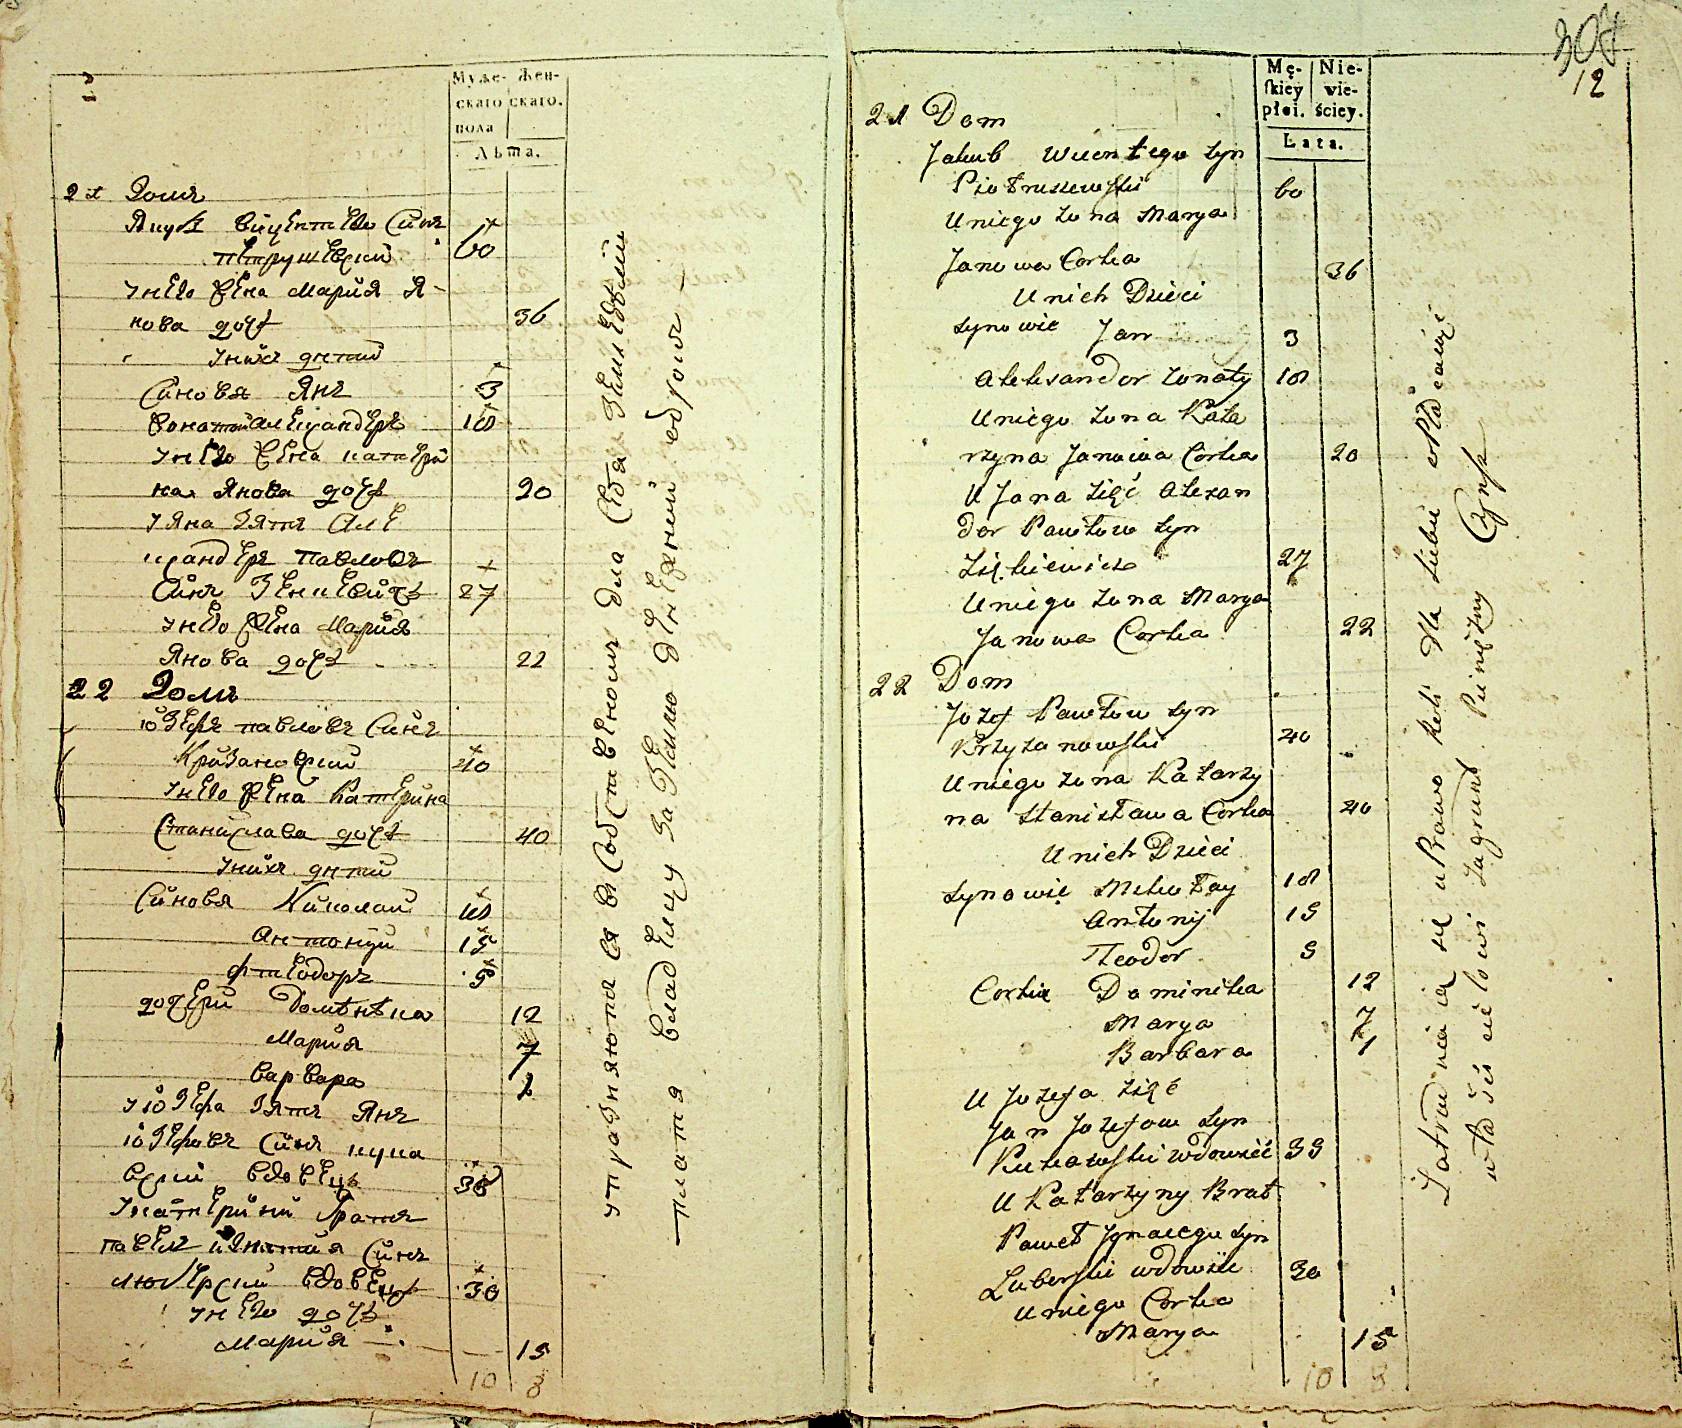 Муже- Жен-
скаго скаго.
пола
Лѣта.
21 Домъ
Якубъ Вицентего Синъ
Петрушевский 60
у него жена Мария Я-
нова дочь 36
у нихъ дети
Синовя Янъ 3
Александеръ 18
у него жена Катери
на Янова дочь 20
у Яна зять Але
ксандеръ Павловъ
Синъ 27
у него жена Мария
Янова дочь 22
22 Домъ
Юзефъ Павловъ Синъ
Кризановский 40
у него жена Катерина
Станислава дочь 40
у нихъ дети
Синовя Николай 18
Антоний 15
Фтеодоръ 9
дочери Доминика 12
Мария 7
Варвара 1
у Юзефа зять Янъ
Юзефовъ Синъ Кука
вский вдовецъ 38
у Катерини братъ
Павелъ Игнатия Синъ
вдовецъ 30
у него дочь
Мария 15
10 8
упражняются въ собственномъ для себя земледелии
платя владелцу за землю денежний
307
12
Mę- Nie-
skiey wie-
płci. ściey.
Lata.
21 Dom
Jakub Wicentego syn
Piotruszewski 60
U niego żona Marya
Janowa Corka 36
U nich Dzieci
synowie Jan 3
Aleksander żonaty 18
U niego żona Kata
rzyna Janowa Corka 20
U Jana zięć Alexan
der Pawłow syn
Ziękiewicz 27
U niego żona Marya
Janowa Corka 22
22 Dom
Jozef Pawłow syn
Krzyżanowski 40
U niego żona Katarzy
na Stanisława Corka 40
U nich Dzieci
synowie Mikołay 18
Antonij 15
Teodor 9
Corki Dominika 12
Marya 7
Barbara 1
U Jozefa zięć
Jan Jozefow syn
Kukawski wdowiec 39
U Katarzyny Brat
Paweł Jgnacego syn
Luberski wdowiec 30
U niego Corka
Marya 15
10 8
Zatrudniaią się uprawą Roli dla siebie płacąc
właścicielowi za grunt Pieniężny Czynsz